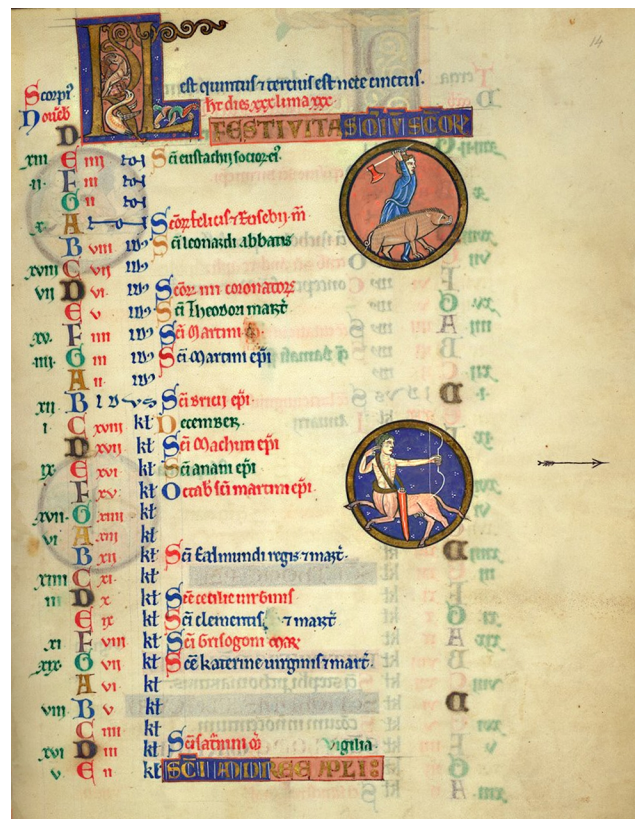 14
N est quintus ⁊ tercius est nece cinctus.
Scorpi⁹
Nouēb
ht dies xxx luna xxx
D FESTIVITAS
xiii E iiii Sc̄i eustachii socior̄
ii F iii
G ii
x A Sc̄oꝝ felicis ⁊ Eusebii m̄
B viii Sc̄i leonardi abbatis
xviii C vii
vii D vi Sc̄oꝝ iiii coronatoꝝ
E v Sc̄i Theodori mart̄
xv F iiii Sc̄i Martini
iiii G iii Sc̄i Martini ep̄i
A ii
xii B IDVS Sc̄i bricii ep̄i
i C xviii kł December
D xvii kł Sc̄i Machuti ep̄i
ix E xvi kł Sc̄i aniani ep̄i
F xv kł Octab sc̄i martini ep̄i
xvii G xiiii kł
vi A xiii kł
B xii kł Sc̄i Eadmundi regis ⁊ mart̄
xiiii C xi kł
iii D x kł Sc̄e cecilie uirginis
E ix kł Sc̄i clementis ⁊ mart̄
xi F viii kł Sc̄i Grisogoni mar
xix G vii kł Sc̄e katerine uirginis ⁊ mart̄
A vi kł
viii B v kł
C iiii kł
xvi D iii kł Sc̄i saturnini vigilia
v E ii kł SC̄I ANDREE APLI